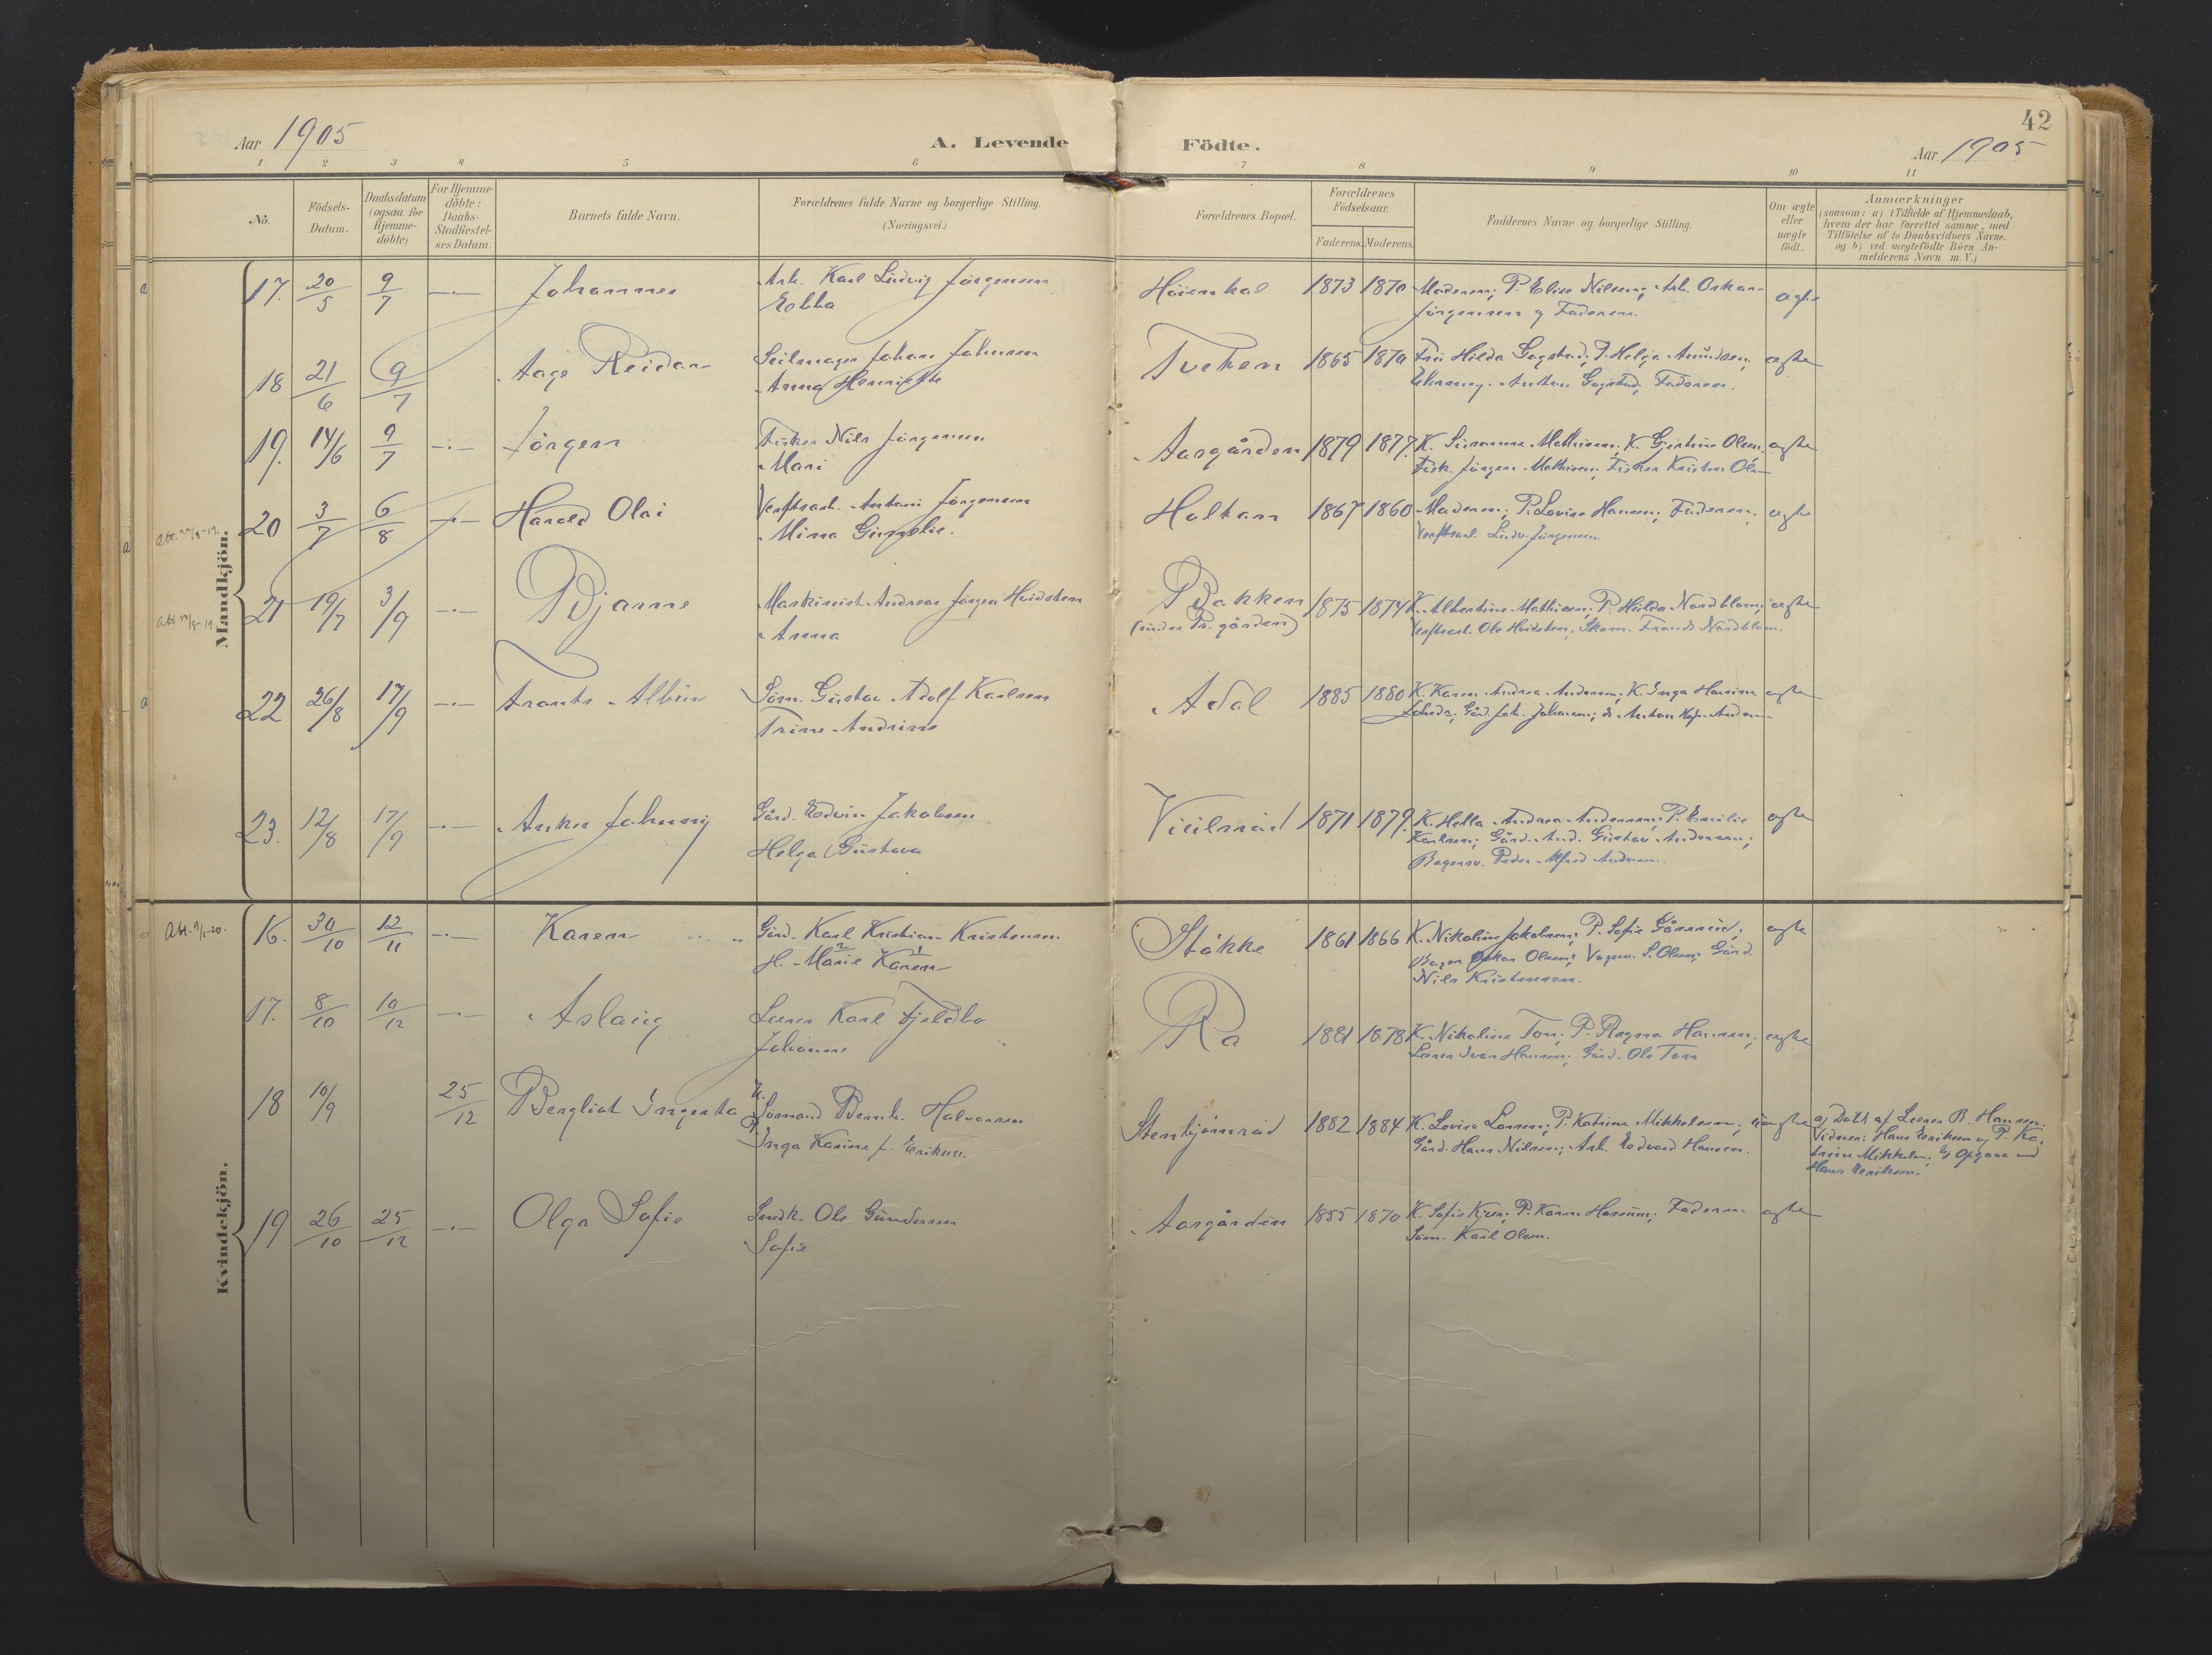 42
Aar 1905
A. Levende Födte.
Aar 1905
1 2 3 4 5 6 7 8 9 10 11
No.
Födsels-Datum.
Daabsdatum (ogsaa for Hjemme-döbte)
For Hjemme-döbte: Daabs-Stadfæstel-ses Datum.
Barnets fulde Navn.
Forældrenes fulde Navne og borgerlige Stilling.
(Næringsvei.)
Forældrenes Bopæl.
Forældrenes Födselsaar.
Faderens. Moderens.
Faddernes Navne og borgerlige Stilling.
Om ægte eller uægte födt.
Anmærkninger
(saasom: a) i Tilfælde af Hjemmedaab,
hvem der har forrettet samme, med
Tilföielse af to Daabsvidners Navne.
og b) ved uegtefödte Börn An-
melderens Navn m. V.)
Mandkjön.
17. 20/5 9/7 -.- Johannes
Arb. Karl Ludvig Jörgensen
Ebba
Höienhal 1873 1870
Moderen; P. Elise Nilsen; Arb. Oskar
Jörgensen og Faderen.
ægte
18 21/6 9/7 Aage Reidar
Seilmager Johan Johnsen
Anna Henriette
Tveten 1865 1870
Fru Hilda Gogstad; P. Helga Amundsen;
Anton Gogstad; Faderen.
ægte
19. 14/6 9/7 -.- Jörgen
Fisker Nils Jörgensen
Mari
Aasgården 1879 1877.
K. Susanne Mathisen; K. Gjertine Olsen.
Fisk. Jörgen Mathisen; Fisker Kristen Olsen
ægte
20 3/7 6/8 -.- Harald Olai
Verftsarb. Antoni Jörgensen
Mina Gunelie.
Holtan 1867 1860
Moderen; P. Lovise Hansen; Faderen;
Verftsarb. Ludv. Jörgensen.
ægte
21 19/7 3/9 -.- Bjarne
Maskinist Andreas Jörgen Hvidsten
Anna
Bakken
(under Pr. gården)
1875 1874
K. Albertine Mathisen; P. Hulda Nordblom;
Verftsarb. Ole Hvidsten; Skom. Frands Nordblom.
ægte
22 26/8 17/9 -.- Frants Albin
Söm. Gustav Adolf Karlsen
Trine Andrine
Adal 1885 1880
K. Karen Andrea Andersen; K. Inga Hansine
Gård. Joh. Johansen; Anton
ægte
23. 12/8 17/9 -.- Anker Johnny
Gård. Edvin Jakobsen
Helga Gustava
Vielnråd 1871 1879.
K. Hella Andrea Andersen; P. Emilie
Karlsen; Gård. And. Gustav Andersen;
Bagersv. Peder Alfred Andersen.
ægte
Kvindekjön.
Att. 9/1-20.
16. 30/10 12/11 -.- Karen
Gård. Karl Kristian Kristensen
H. Marie Karen
Stökke 1861 1866
K. Nikoline Jakobsen; P. Sofie Gåserud;
Bager Oskar Olsen; Vognm. S. Olsen; Gård.
Nils Kristensen.
ægte
17. 8/10 10/12 -.- Aslaug
Lærer Karl Fjeldbo
Johanne
Ra 1881 1878
K. Nikoline Ton; P. Ragna Hansen;
Lærer Ivar Hansen; Gård. Ole Ton
ægte
18 10/9 25/12 Bergliot Ingerta
U. Sömand Bernh. Halvorsen
P. Inga Karine f. Eriksen.
Stenbjönröd 1882 1884
K. Lovise Larsen; P. Katrine Mikkelsen;
Gård. Hans Nielsen; Arb. Edvard Hansen.
uægte
a) Döbt af Lærer B. Hansen.
Vidner: Hans Eriksen og P. Ka-
trine Mikkelsen; b) Opgave ved
Hans Eriksen.
19 26/10 25/12 -.- Olga Sofie
Snedk. Ole Gundersen
Sofie
Aasgården 1855 1870
K. Sofie Kjær; P. Karen Hansen; Faderen
Söm. Karl Olsen.
ægte